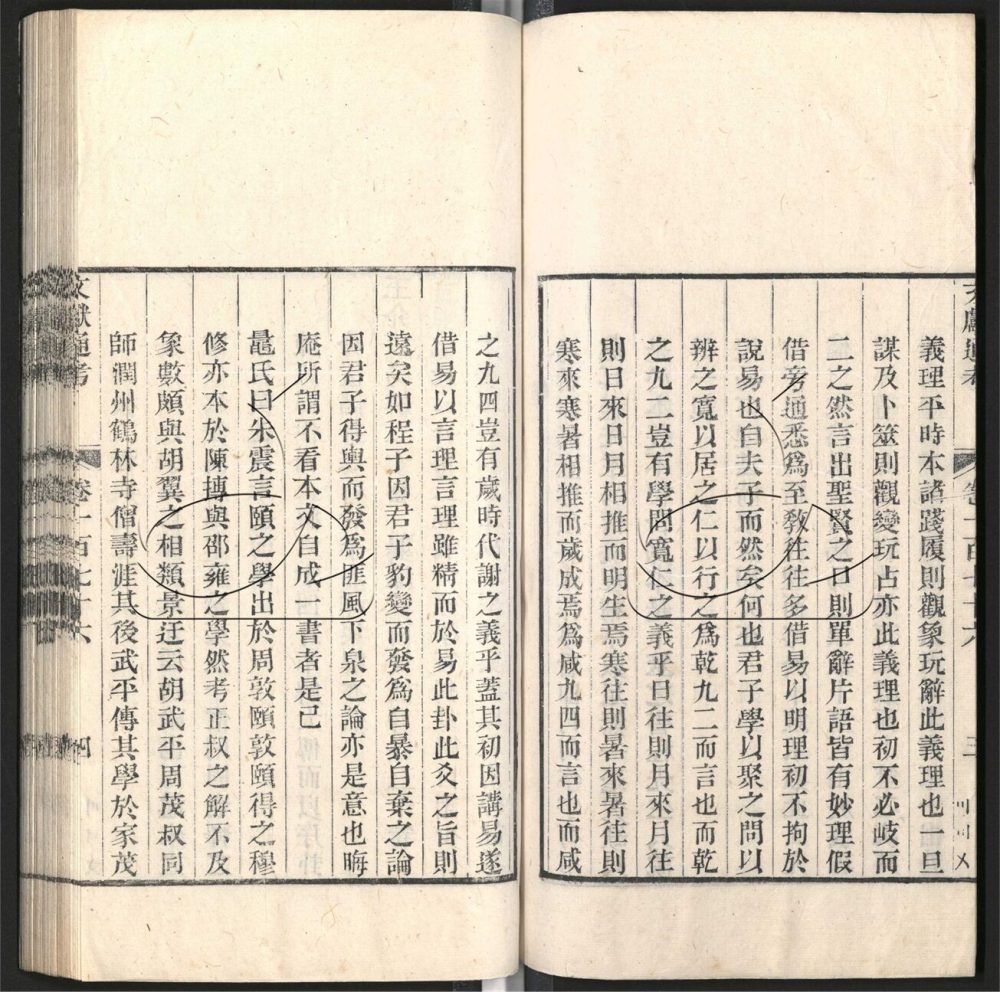 義理平時本諸踐履則觀象玩辭此義理也一旦
謀及卜筮則觀變玩占亦此義理也初不必岐而
二之然言出聖賢之口則單辭片語皆有妙理假
借旁通悉爲至敎往往多借易以明理初不拘於
說易也自夫子而然矣何也君子學以聚之問以
辨之寬以居之仁以行之爲乾九二而言也而乾
之九二豈有學問寬仁之義乎日往則月來月往
則日來日月相推而明生焉寒往則暑來暑往則
寒來寒暑相推而歲成焉爲咸九四而言也而咸
之九四豈有歲時代謝之義乎蓋其初因講易遂
借易以言理言理雖精而於易此卦此爻之旨則
遠矣如程子因君子豹變而發爲自暴自棄之論
因君子得輿而發爲匪風下泉之論亦是意也晦
庵所謂不看本文自成一書者是已
鼂氏曰朱震言頤之學出於周敦頤敦頤得之穆
修亦本於陳摶與邵雍之學然考正叔之解不及
象數頗與胡翼之相類景迂云胡武平周茂叔同
師潤州鶴林寺僧壽涯其後武平傳其學於家茂
文獻通考 卷一百七十六 三
文獻通考 卷一百七十六 四